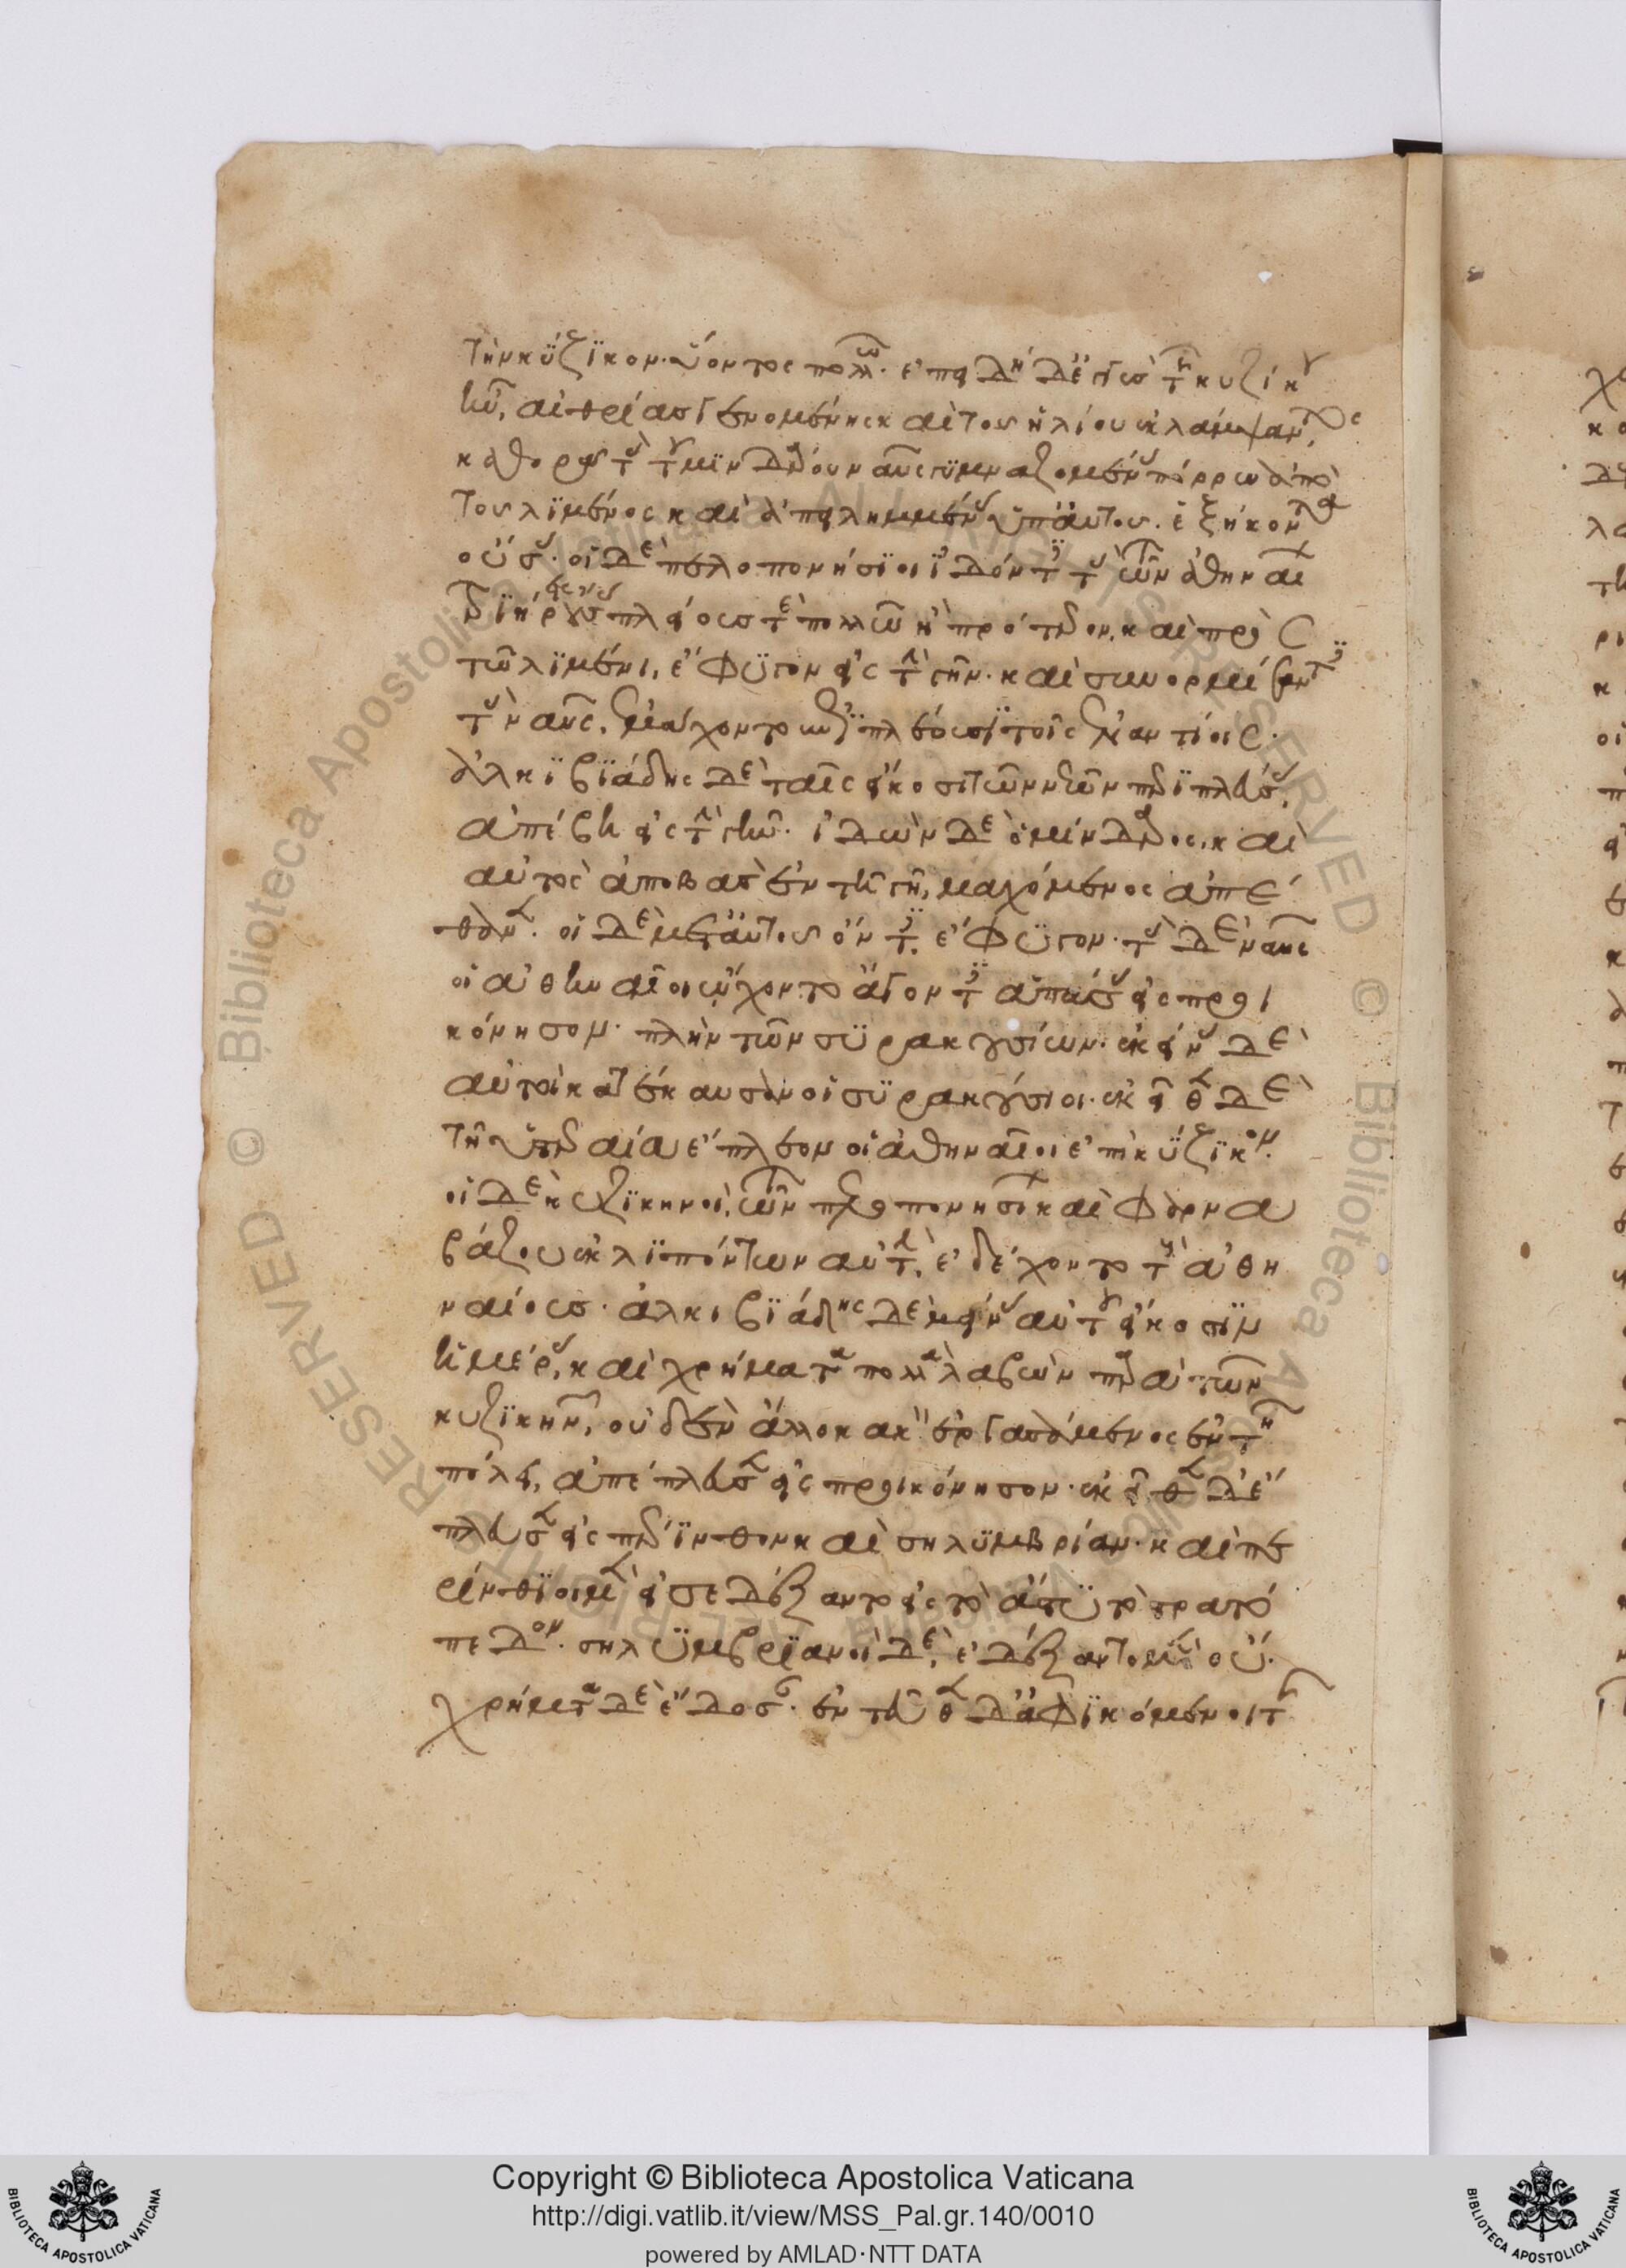 τὴν κύζικον· ὕοντος πολλῶ· ἐπειδὴ δὲ ἐγγὺς τῆς κυζίκου
ἦν, αἰθρίας γενομένης καὶ τοῦ ἡλίου ἐκλάμψαντος,
καθορᾶ τὰς τοῦ μινδάρου ναῦς γυμναζομένας πόρρω ἀπὸ
τοῦ λιμένος καὶ ἀπειλημμένας ὑπ' αὐτοῦ. ἑξήκοντα
οὔσας· οἱ δὲ πελοποννήσιοι ἰδόντες τὰς τῶν ἀθηναί
τριήρεις οὔσας πλείους τε πολλῶ ἢ πρότερον, καὶ πρὸς
τῶ λιμένι, ἔφυγον εἰς τὴν γῆν· καὶ συνορμίσαντες
τὰς ναῦς, ἐμάχοντο ἐπιπλέουσι τοῖς ἐναντίοις·
ἀλκιβιάδης δὲ ταῖς εἴκοσι τῶν νεῶν περιπλεύσας,
ἀπέβη εἰς τὴν γῆν· ἰδὼν δὲ ὁ μίνδαρος, καὶ
αὐτὸς ἀποβὰς ἐν τῆ γῆ, μαχόμενος ἀπέ
θανεν· οἱ δὲ μετ' αὐτοῦ ὄντες, ἔφυγον· τὰς δὲ ναῦς
οἱ ἀθηναῖοι ὤχοντο ἄγοντες ἁπάσας εἰς προι
κόνησον· πλὴν τῶν συρακουσίων· ἐκείνας δὲ
αὐτοὶ κατέκαυσαν οἱ συρακούσιοι· ἐκεῖθεν δὲ
τῆ ὑστεραία ἔπλεον οἱ ἀθηναῖοι ἐπὶ κύζικον·
οἱ δὲ κυζικηνοὶ, τῶν πελοποννησίων καὶ φαρνα
βάζου ἐκλιπόντων αὐτὴν, ἐδέχοντο τοὺς ἀθη
ναίους· ἀλκιβιάδης δὲ μείνας αὐτοῦ εἴκοσιν
ἡμέρας, καὶ χρήματα πολλὰ λαβὼν παρὰ τῶν
κυζικηνῶν, οὐδὲν ἄλλο κακὸν ἐργασάμενος ἐν τῆ
πόλει, ἀπέπλευσεν εἰς προικόνησον· ἐκεῖθεν δ' ἔ
πλευσεν εἰς πέρινθον καὶ σηλυμβρίαν· καὶ πε
ρίνθιοι μὲν εἰσεδέξαντο εἰς τὸ ἄστυ τὸ στρατό
πεδον· σηλυμβριανοὶ δὲ, ἐδέξαντο μὲν οὔ·
χρήματα δὲ ἔδοσαν· ἐντεῦθεν δ' ἀφικόμενοι τῆς
Copyright © Biblioteca Apostolica Vaticana
http://digi.vatlib.it/view/MSS_Pal.gr.140/0010
powered by AMLAD·NTT DATA